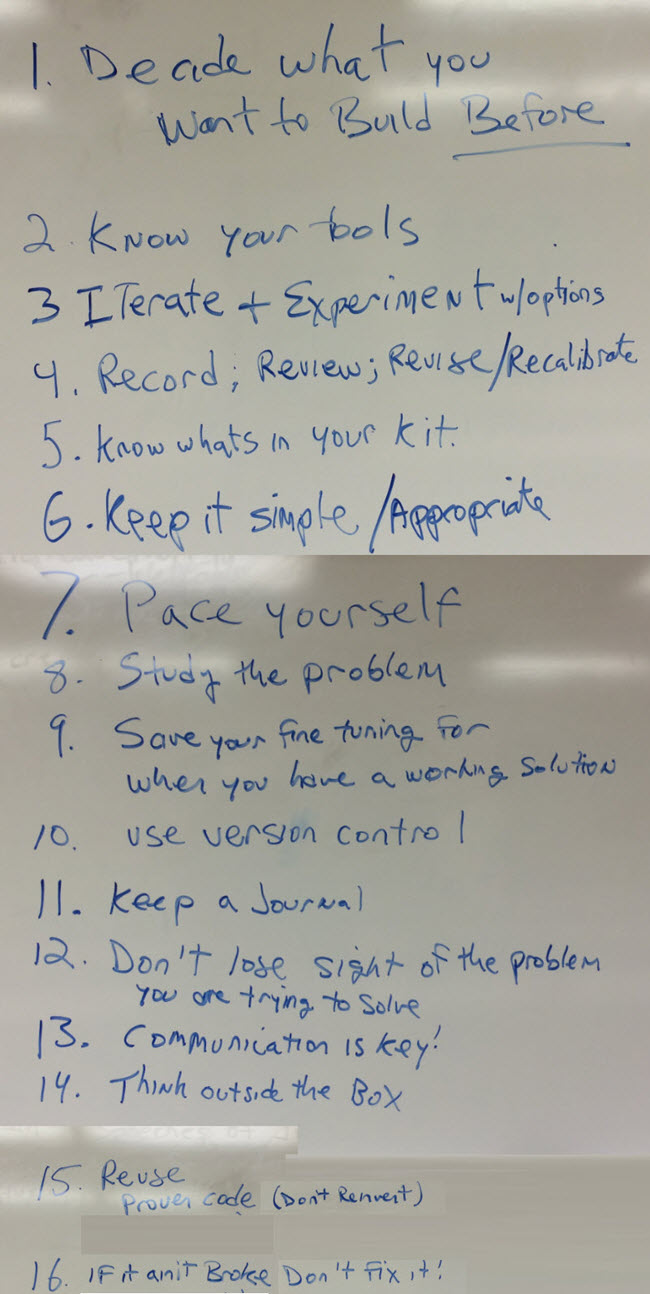 1. Decide what you
Want to Build Before
2. Know your tools
3 ITerate + Experiment w/options
4. Record; Review; Revise/Recalibrate
5. Know whats in your kit.
6. Keep it simple/Appropriate
7. Pace yourself
8. Study the problem
9. Save your fine tuning for
when you have a working solution
10. use version control
11. Keep a Journal
12. Don't lose sight of the problem
you are trying to solve
13. Communication is key!
14. Think outside the Box
15. Reuse
Proven code (Don't Reinvent)
16. IF it ain't Broke Don't fix it!